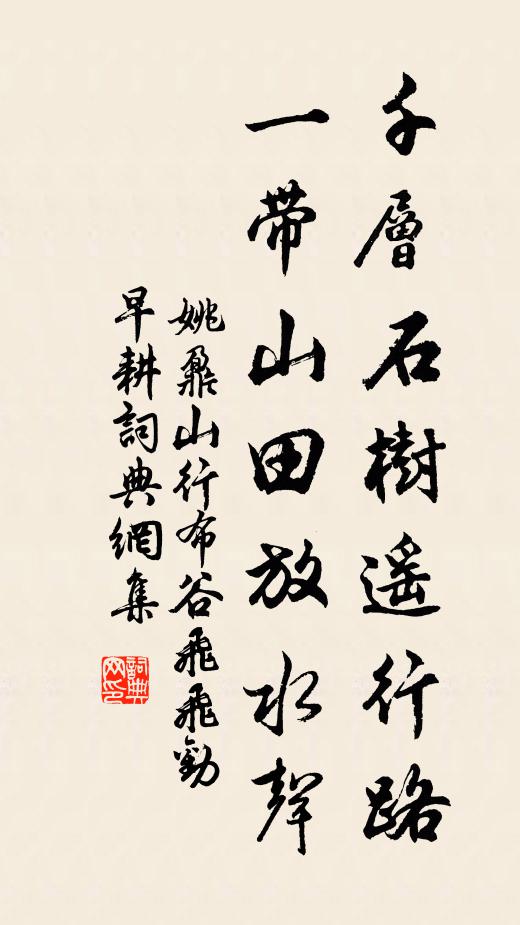 千層石樹遥行路
一帶山田放水聲
姚鼐山行布谷飛飛勸
早耕詞典網集
詞典
网印